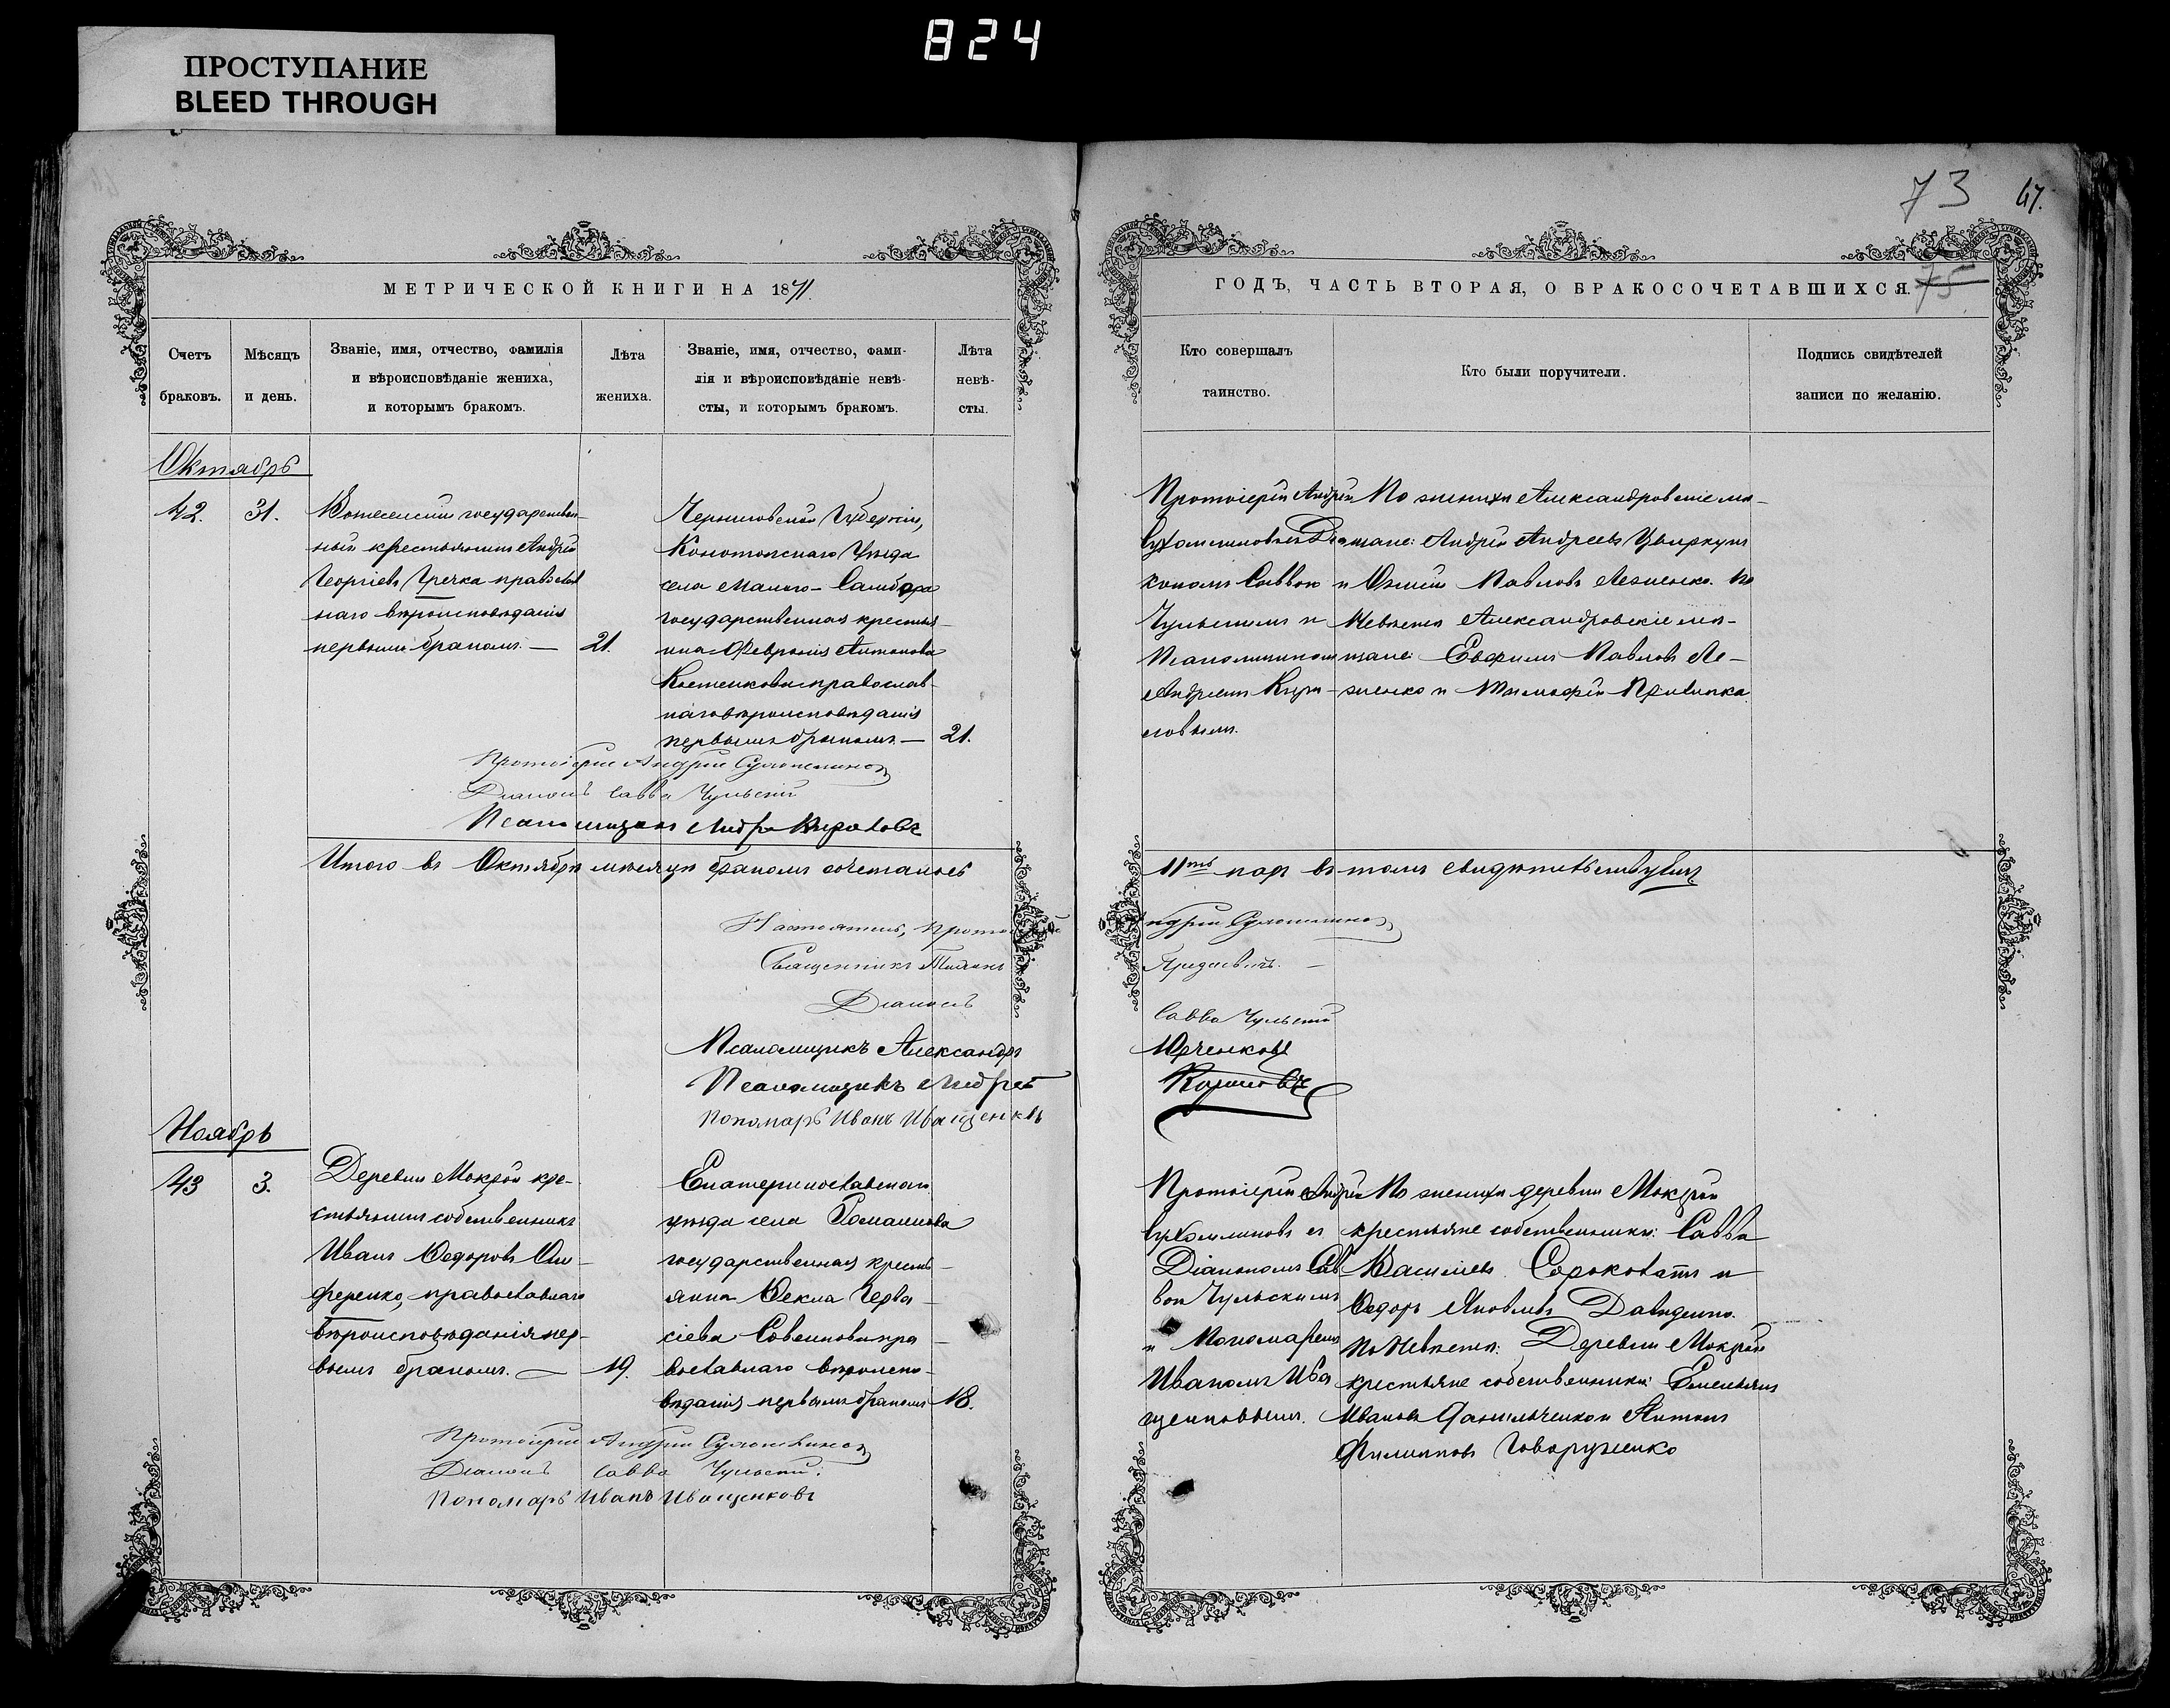 824
ПРОСТУПАНИЕ
BLEED THROUGH
73
47.
МЕТРИЧЕСКОЙ КНИГИ НА 1871.
Счетъ браковъ.
Мѣсяцъ и день.
Званіе, имя, отчество, фамилія
и вѣроисповѣданіе жениха,
и которымъ бракомъ.
Лѣта
жениха.
Званіе, имя, отчество, фами-
лія и вѣроисповѣданіе невѣ-
сты, и которымъ бракомъ.
Лѣта
невѣ-
сты.
Октябрь
42.
31.
государствен-
ный крестьянинъ Андрей
Георгіевъ Гречка православ
наго вѣроисповѣданія
первымъ бракомъ. —
21.
Черниговской Губерніи,
Конотопскаго Уѣзда
села Малаго-Самбора
государственная крестья-
нка Февронія Антонова
Костенкова православ-
наго вѣроисповѣданія
первымъ бракомъ. —
21.
Протоіерей Андрей Сухомлиновъ
Діаконъ Савва Чульскій
Псаломщикъ Андрей
Итого въ Октябрѣ мѣсяцѣ бракомъ сочеталось
Настоятель, Прото
Священникъ
Діаконъ
Псаломщикъ Александръ
Псаломщикъ Андрей
Пономарь Иванъ Иващенковъ
Ноябрь
43
3.
Деревни Мокрой кре-
стьянинъ собственникъ
Иванъ Ѳедоровъ Они-
ференко, православнаго
вѣроисповѣданія пер-
вымъ бракомъ. —
19.
Екатеринославскаго
уѣзда села
государственная кресть-
янка Ѳекла Герва-
сіева пра-
вославнаго вѣроиспо-
вѣданія первымъ бракомъ
18.
Протоіерей Андрей Сухомлиновъ
Діаконъ Савва Чульскій
Пономарь Иванъ Иващенковъ
ГОДЪ, ЧАСТЬ ВТОРАЯ, О БРАКОСОЧЕТАВШИХСЯ.
75
Кто совершалъ
таинство.
Кто были поручители.
Подпись свидѣтелей
записи по желанію.
Протоіерей Андрей
Сухомлиновъ съ Діа
кономъ Саввою
Чульскимъ и
Псаломщикомъ
Андреемъ Кири-
ловымъ.
По женихѣ Александровскіе мѣ-
щане: Андрей Андреевъ
и Павловъ Леженко. По
Невѣстѣ Александровскіе мѣ-
щане: Евфимъ Павловъ Ле-
женко и Тимофей
11ть паръ въ томъ свидѣтельствуемъ
Андрей Сухомлиновъ
Савва Чульскій
Юрченковъ
Протоіерей Андрей
Сухомлиновъ съ
Діакономъ Сав
вою Чульскимъ
и Пономаремъ
Иваномъ Ива
щенковымъ.
По женихѣ деревни Мокрой
крестьяне собственники: Савва
Васильевъ и
Ѳедоръ Яковлевъ Давиденко.
По Невѣстѣ: Деревни Мокрой
крестьяне собственники: Емельянъ
Ивановъ Данильченко и Антонъ
Филиповъ Говоруженко